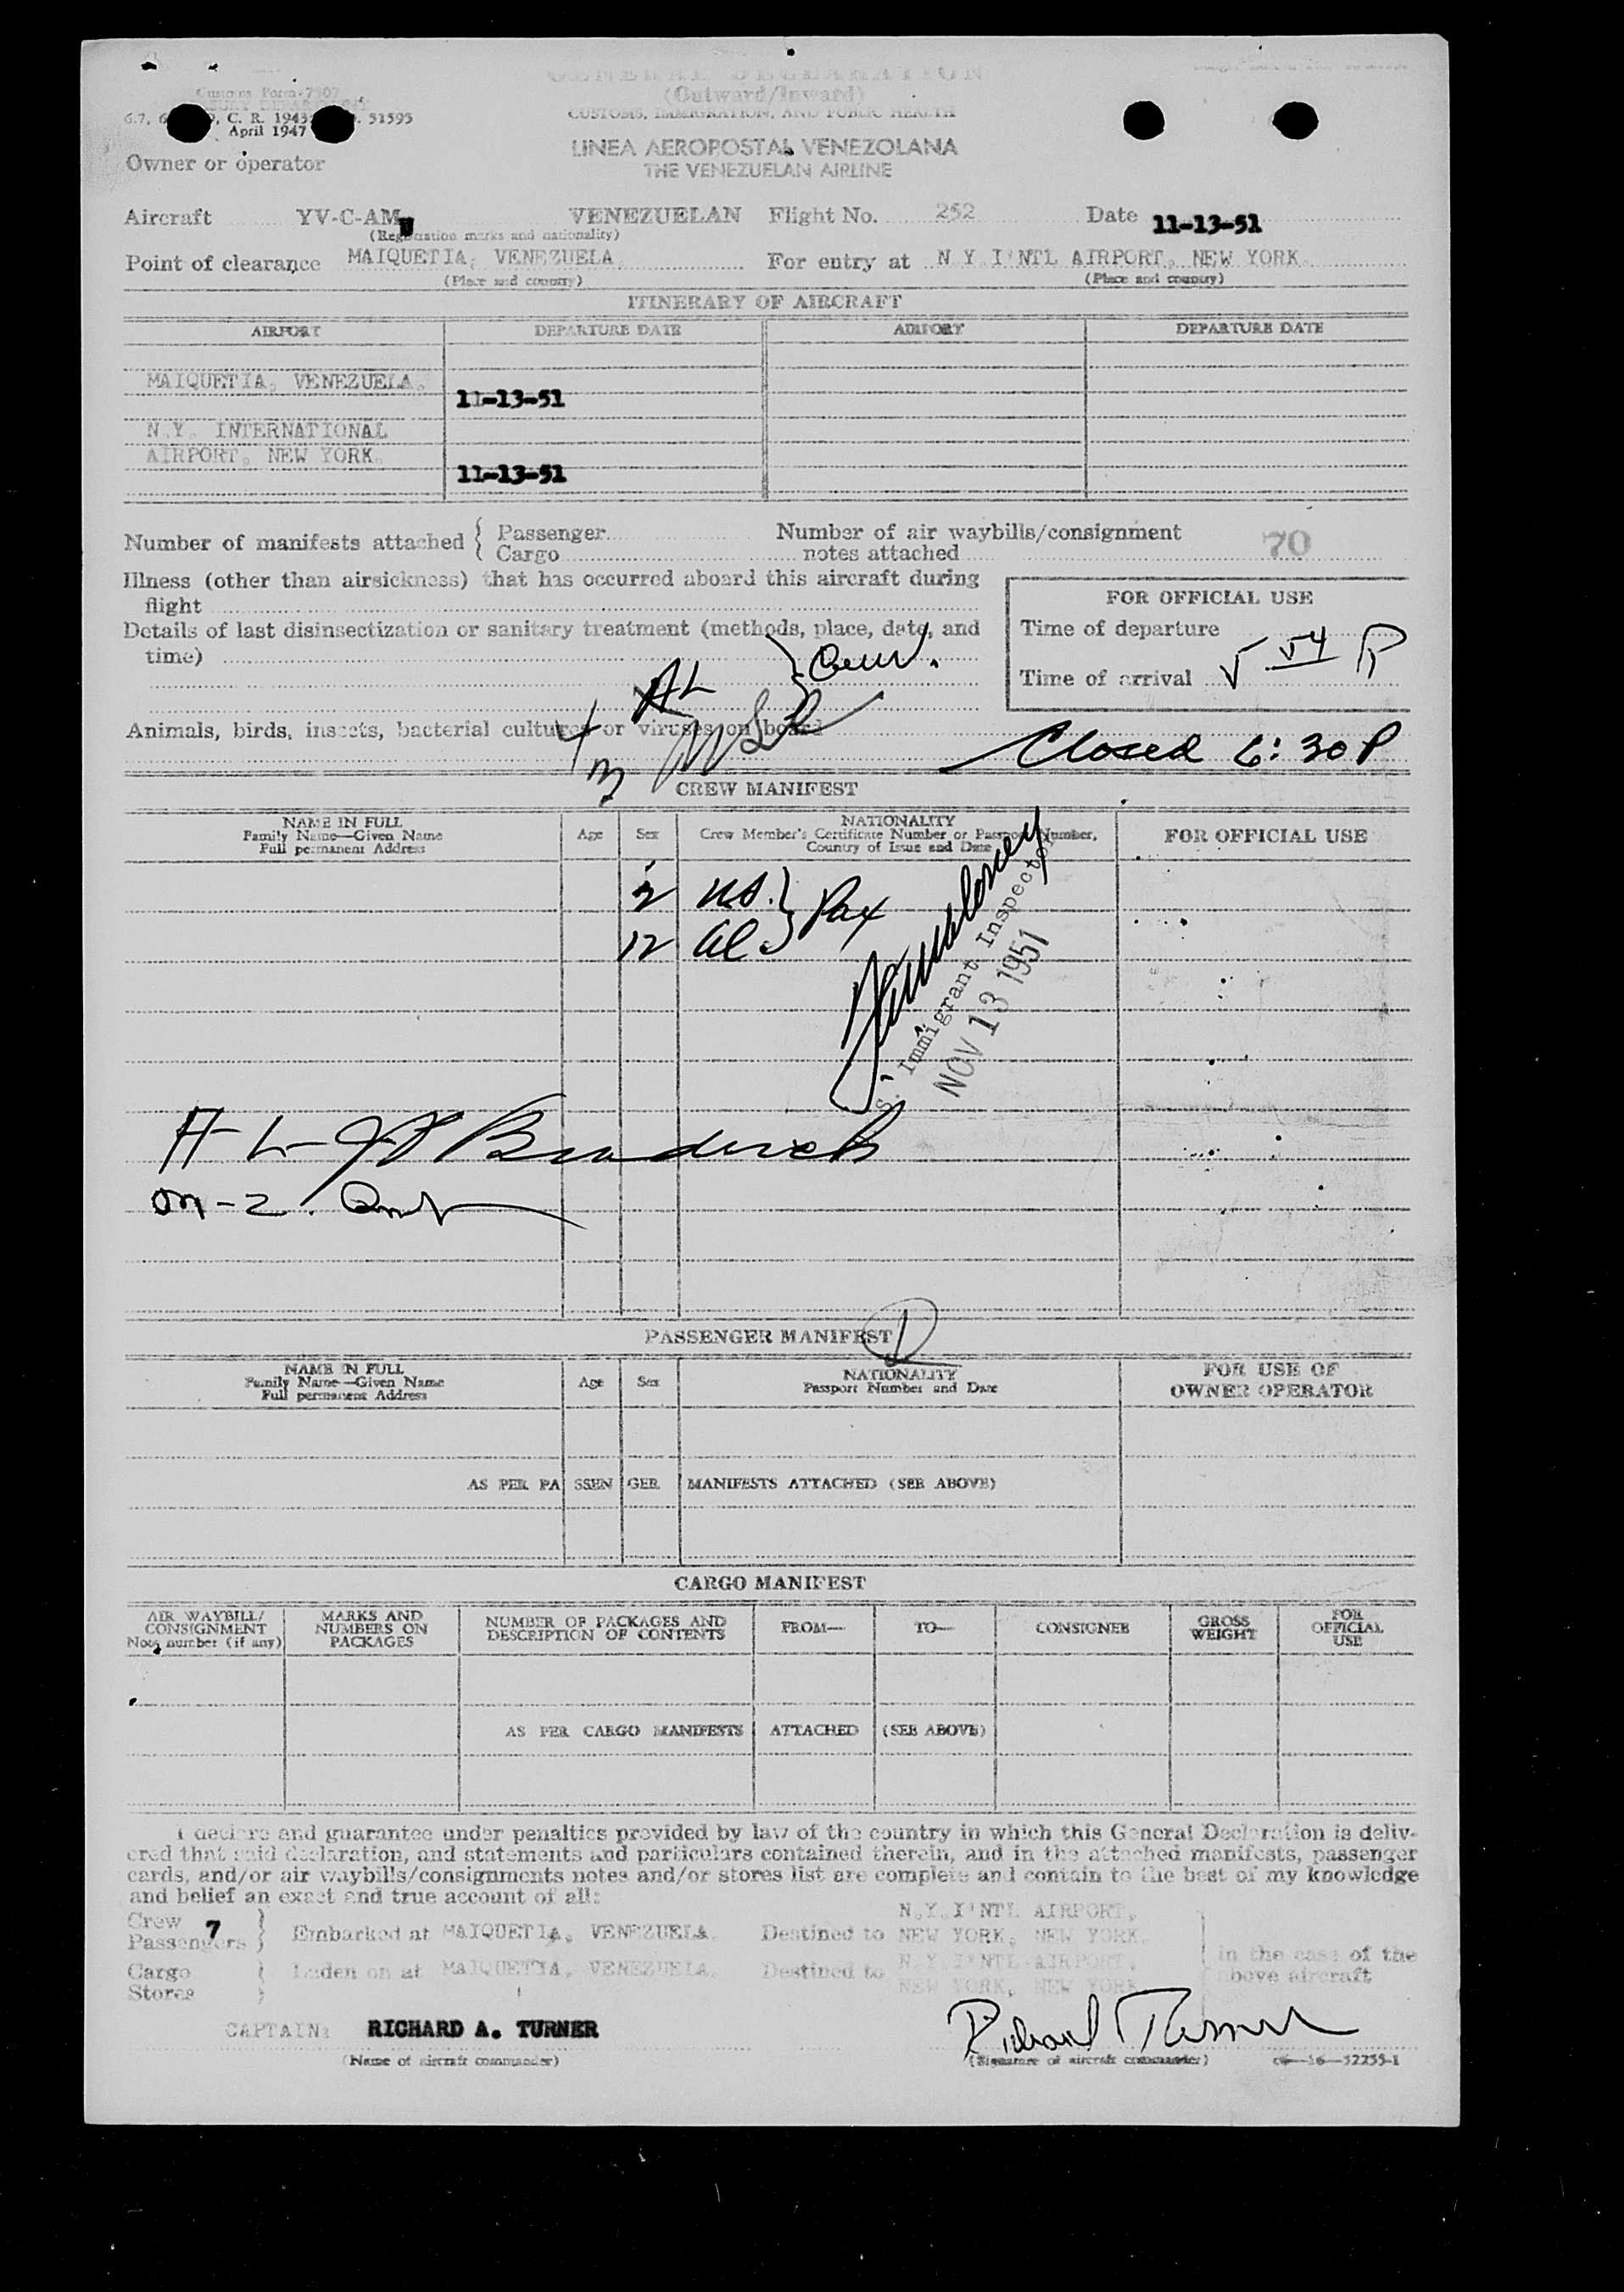 GENERAL DECLARATION
(Outward/Inward)
CUSTOMS, IMMIGRATION, AND PUBLIC HEALTH
Customs Form-7507
C. R. 1943 51595
April 1947
LINEA AEROPOSTAL VENEZOLANA
THE VENEZUELAN AIRLINE
Owner or operator
Aircraft YV-C-AM VENEZUELAN Flight No. 252 Date 11-13-51
(Registration marks and nationality)
Point of clearance MAIQUETIA, VENEZUELA. For entry at N.Y.I'NTL AIRPORT, NEW YORK.
(Place and country) (Place and country)
ITINERARY OF AIRCRAFT
AIRPORT DEPARTURE DATE AIRPORT DEPARTURE DATE
MAIQUETIA, VENEZUELA.
11-13-51
N.Y. INTERNATIONAL
AIRPORT, NEW YORK.
11-13-51
Number of manifests attached { Passenger Number of air waybills/consignment
Cargo notes attached 70
Illness (other than airsickness) that has occurred aboard this aircraft during
flight
FOR OFFICIAL USE
Details of last disinsectization or sanitary treatment (methods, place, date, and
time)
Time of departure
Time of arrival 5 54 P
4 AL
3
Animals, birds, insects, bacterial cultures or viruses on board
Closed 6:30 P
CREW MANIFEST
NAME IN FULL
Family Name—Given Name
Full permanent Address
Age Sex
NATIONALITY
Crew Member's Certificate Number or Passport Number,
Country of Issue and Date
FOR OFFICIAL USE
2 US. } Pax
12 Al
S. Immigrant Inspector
NOV 13 1951
PASSENGER MANIFEST 1
NAME IN FULL
Family Name—Given Name
Full permanent Address
Age Sex
NATIONALITY
Passport Number and Date
FOR USE OF
OWNER OPERATOR
AS PER PA SSEN GER MANIFESTS ATTACHED (SEE ABOVE)
CARGO MANIFEST
AIR WAYBILL/
CONSIGNMENT
Note number (if any)
MARKS AND
NUMBERS ON
PACKAGES
NUMBER OF PACKAGES AND
DESCRIPTION OF CONTENTS
FROM— TO— CONSIGNEE
GROSS
WEIGHT
FOR
OFFICIAL
USE
AS PER CARGO MANIFESTS ATTACHED (SEE ABOVE)
I declare and guarantee under penalties provided by law of the country in which this General Declaration is deliv-
ered that said declaration, and statements and particulars contained therein, and in the attached manifests, passenger
cards, and/or air waybills/consignments notes and/or stores list are complete and contain to the best of my knowledge
and belief an exact and true account of all:
Crew 7
Passengers } Embarked at MAIQUETIA, VENEZUELA. Destined to N.Y.I'NTL AIRPORT, NEW YORK, NEW YORK.
Cargo
Stores } Laden on at MAIQUETIA, VENEZUELA. Destined to N.Y.I'NTL AIRPORT, NEW YORK, NEW YORK
in the case of the
above aircraft
CAPTAIN: RICHARD A. TURNER Richard Turner
(Name of aircraft commander) (Signature of aircraft commander) 16—52255-1